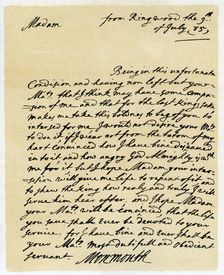 from Ringwood the 9th
Madam of July 85
Being in this unfortunate
Condition and having non left but your
Maty. that I think may have some compas-
sion of me and that for the last Kings sake
makes me take this boldnes to beg of you to
intersed for me I would not desire your Maty
to doe it if I wear not from the botom of my
hart convinced how I have bine disceaved
in to it and how angry God Almighty is with
me for it but I hope Madam your inter-
sesion will give me life to repent of it and
to shew the King how realy and truly I will
serve him hear after and I hope Madam
your Maty will be convinced that the life
you save shall ever be devoted to your
service for I have ever and ever shall be
your Matys most dutifull and obedient
servant Monmouth